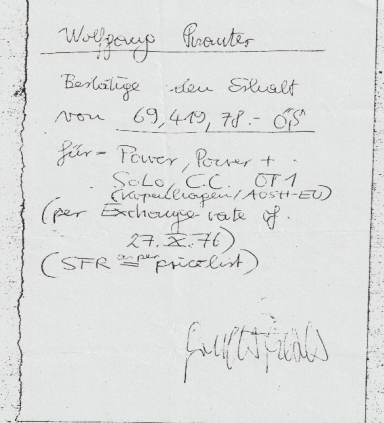 Wolfgang Kranter
Bestätige den Erhalt
von 69,419,78.- ÖS
für - Power, Power +
SoLo, C.C. OT 1
(Kopenhagen/AOSH-EU)
(per Exchange rate of
27.X.76)
(SFR as per pricelist)